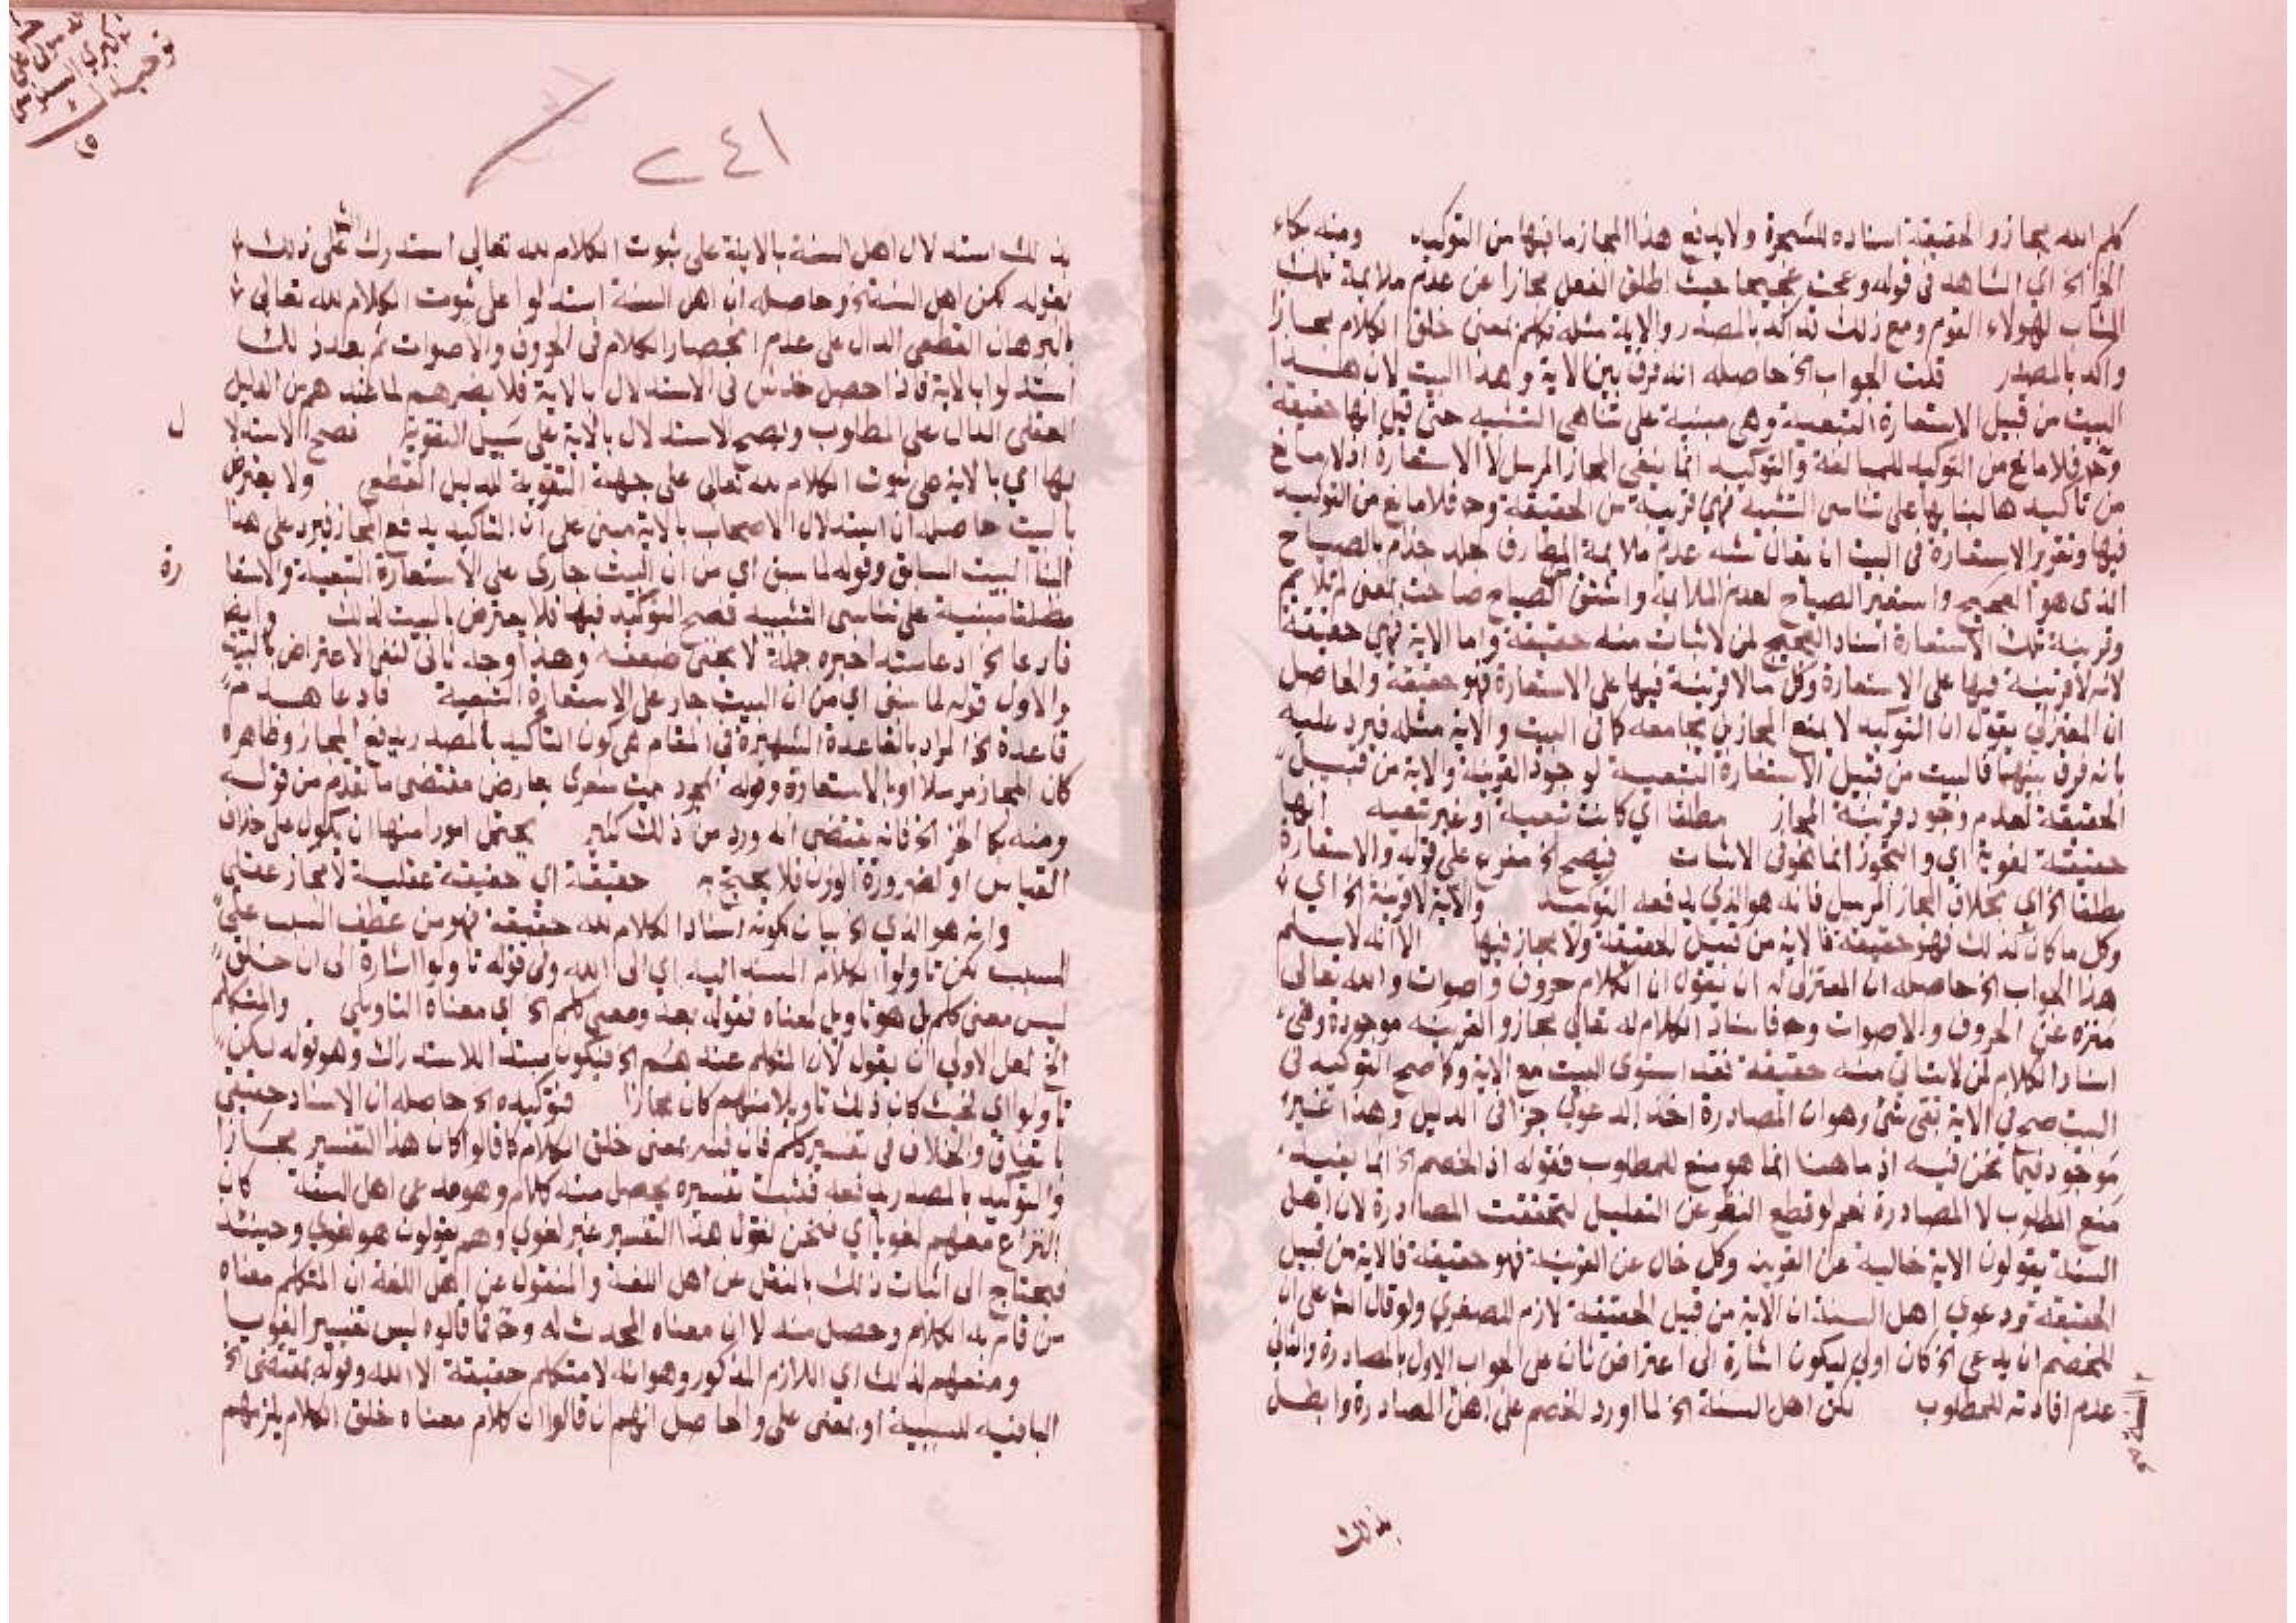 كلم الله مجاز والحقيقة اسناده للشجرة ولا يدفع هذا المجاز ما فيها من التوكيد ومنه بكاء
الخز الخ اي الشاهد في قوله وعجت عجيجا حيث اطلق الفعل مجازا عن عدم ملايمة تلك
الثياب لهولاء القوم ومع ذلك قد اكد بالمصدر والاية مثله فكلم بمعنى خلق الكلام مجازا
واكد بالمصدر قلت الجواب الخ حاصله انه فرق بين الاية وهذا البيت لان هذا
البيت من قبيل الاستعارة التبعية وهي مبنية على تناهي التشبيه حتى قيل انها حقيقة
وح فلا مانع من التوكيد للمبالغة والتوكيد انما ينفي المجاز المرسل لا الاستعارة اذ لا مانع
من تأكيدها لبنايها على تناسي التشبيه فهي قريبة من الحقيقة وح فلا مانع من التوكيد
فيها وتقرير الاستعارة في البيت ان يقال شبه عدم ملايمة المطارف جلد جذام بالصياح
الذي هو العجيج واستعير الصياح لعدم الملايمة واشتق من الصياح صاحت بمعنى لم تلايم
وقرينة تلك الاستعارة اسناد العجيج لمن لا يتأت منه حقيقة واما الاية فهي حقيقة
لانه لا قرينة فيها على الاستعارة وكل ما لا قرينة فيها على الاستعارة فهو حقيقة والحاصل
ان المعتزلي يقول ان التوكيد لا يمنع المجاز بل يجامعه كما في البيت والاية مثله فيرد عليه
بانه فرق بينهما فالبيت من قبيل الاستعارة التبعية لوجود القرينة والاية من قبيل
الحقيقة لعدم وجود قرينة المجاز مطلقا اي كانت تبعية او غير تبعية انها
حقيقة لغوية اي والتجوز انما هو في الاثبات فيصح الخ مفرع على قوله والاستعارة
مطلقا الخ اي بخلاف المجاز المرسل فانه هو الذي يدفعه التوكيد والاية لا قرينة الخ اي
وكل ما كان كذلك فهو حقيقة فالاية من قبيل الحقيقة ولا مجاز فيها الا انه لا يسلم
هذا الجواب الخ حاصله ان المعتزلي له ان يقول ان الكلام حروف واصوات والله تعالى
منزه عن الحروف والاصوات وح فاسناد الكلام له تعالى مجاز والقرينة موجودة وهي
اسناد الكلام لمن لا يتاتى منه حقيقة فقد استوى البيت مع الاية وكما صح التوكيد في
البيت صح في الاية بقي شئ وهو ان المصادرة اخذ الدعوى جزا في الدليل وهذا غير
موجود فيما نحن فيه اذ ما هنا انما هو منع للمطلوب فقوله اذ الخصم الخ انما يفيد
منع المطلوب لا المصادرة نعم لو قطع النظر عن التعليل لتحققت المصادرة لان اهل
السنة يقولون الاية خالية عن القرينة وكل خال عن القرينة فهو حقيقة فالاية من قبيل
الحقيقة ودعوى اهل السنة ان الاية من قبيل الحقيقة لازم للصغرى ولو قال الش على ان
للخصم ان يدعي الخ كان اولى ليكون اشارة الى اعتراض ثان على الجواب الاول بالمصادرة والثاني
عدم افادته للمطلوب لكن اهل السنة الخ لما اورد الخصم على اهل المصادرة وابطل
بذلك
٢٤١
بذلك استدلال اهل السنة بالاية على ثبوت الكلام لله تعالى استدرك الش على ذلك
بقوله لكن اهل السنة الخ وحاصله ان اهل السنة استدلوا على ثبوت الكلام لله تعالى
بالبرهان القطعي الدال على عدم انحصار الكلام في الحروف والاصوات ثم بعد ذلك
استدلوا بالاية فاذا حصل خدش في الاستدلال بالاية فلا يضرهم لما عندهم من الدليل
العقلي الدال على المطلوب ويصح الاستدلال بالاية على سبيل التقوية فصح الاستدلا
ل
بها اي بالاية على ثبوت الكلام لله تعالى على جهة التقوية للدليل القطعي ولا يعترض
بالبيت حاصله ان استدلال الاصحاب بالاية مبني على ان التاكيد يدفع المجاز فيرد على هذا
البنا البيت السابق وقوله لما سبق اي من ان البيت جارى على الاستعارة التبعية والاستعا
رة
مطلقا مبنية على تناسى التشبيه فصح التوكيد فيها فلا يعترض بالبيت لذلك وايضا
فادعا الخ ادعا مبتدا خبره جملة لا يخفى ضعفه وهذا وجه ثاني لنفي الاعتراض بالبيت
والاول قوله لما سبق اي من ان البيت جار على الاستعارة التبعية فادعا هدم
قاعدة الخ المراد بالقاعدة الشهيرة في المقام هي كون التاكيد بالمصدر يدفع المجاز وظاهره
كان المجاز مرسلا او بالاستعارة وقوله بمجرد بيت شعرى يعارض مقتضى ما تقدم من قوله
ومنه بكا الخز الخ فانه يقتضي انه ورد من ذلك كثير يحتمل امورا منها ان يكون على خلاف
القياس او لضرورة الوزن فلا يحتج به حقيقة اي حقيقة عقلية لا مجاز عقلي
وانه هو الذي الخ بيان لكونه اسناد الكلام لله حقيقة فهو من عطف السبب على
المسبب لكن تاولوا الكلام المسند اليه اي الى الله وفي قوله تاولوا اشارة الى ان خلق
ليس معنى كلم بل هو تاويل لمعناه فقوله بعد ومعنى كلم الخ اي معناه التاويلي والمتكلم
الخ لعل الاولى ان يقول لان المتكلم عندهم الخ فيكون مبتدا للاستدراك وهو قوله لكن
تاولوا اي بحيث كان ذلك تاويلا منهم كان مجازا فتوكيده الخ حاصله ان الاسناد حقيقي
باتفاق والخلاف في تفسير كلم فان فسر بمعنى خلق الكلام كما قالوا كان هذا التفسير مجازا
والتوكيد بالمصدر يدفعه فثبت تفسيره بحصل منه كلام وهو مدعى اهل السنة كان
النزاع معهم لغويا اي فنحن نقول هذا التفسير غير لغوي وهم يقولون هو لغوي وحينئذ
فيحتاج الى اثبات ذلك بالنقل عن اهل اللغة والمنقول عن اهل اللغة ان المتكلم معناه
من قام به الكلام وحصل منه لا ان معناه المحدث له وح فما قالوه ليس تفسيرا لغويا
ومنعهم لذلك اي اللازم المذكور وهو انه لا متكلم حقيقة الا الله وقوله بمقتضى الخ
البا فيه للسببية او بمعنى على والحاصل انهم ان قالوا ان كلام معناه خلق الكلام يلزمهم